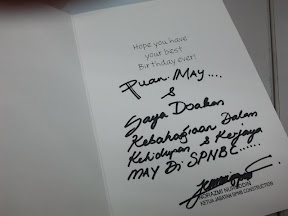 Hope you have
your best
Birthday ever!
Puan MAY ....
&
Saya Doakan
Kebahagiaan Dalam
Kehidupan & Kerjaya
MAY Di SPNBC......
KETUA JABATAN SPNB CONSTRUCTION